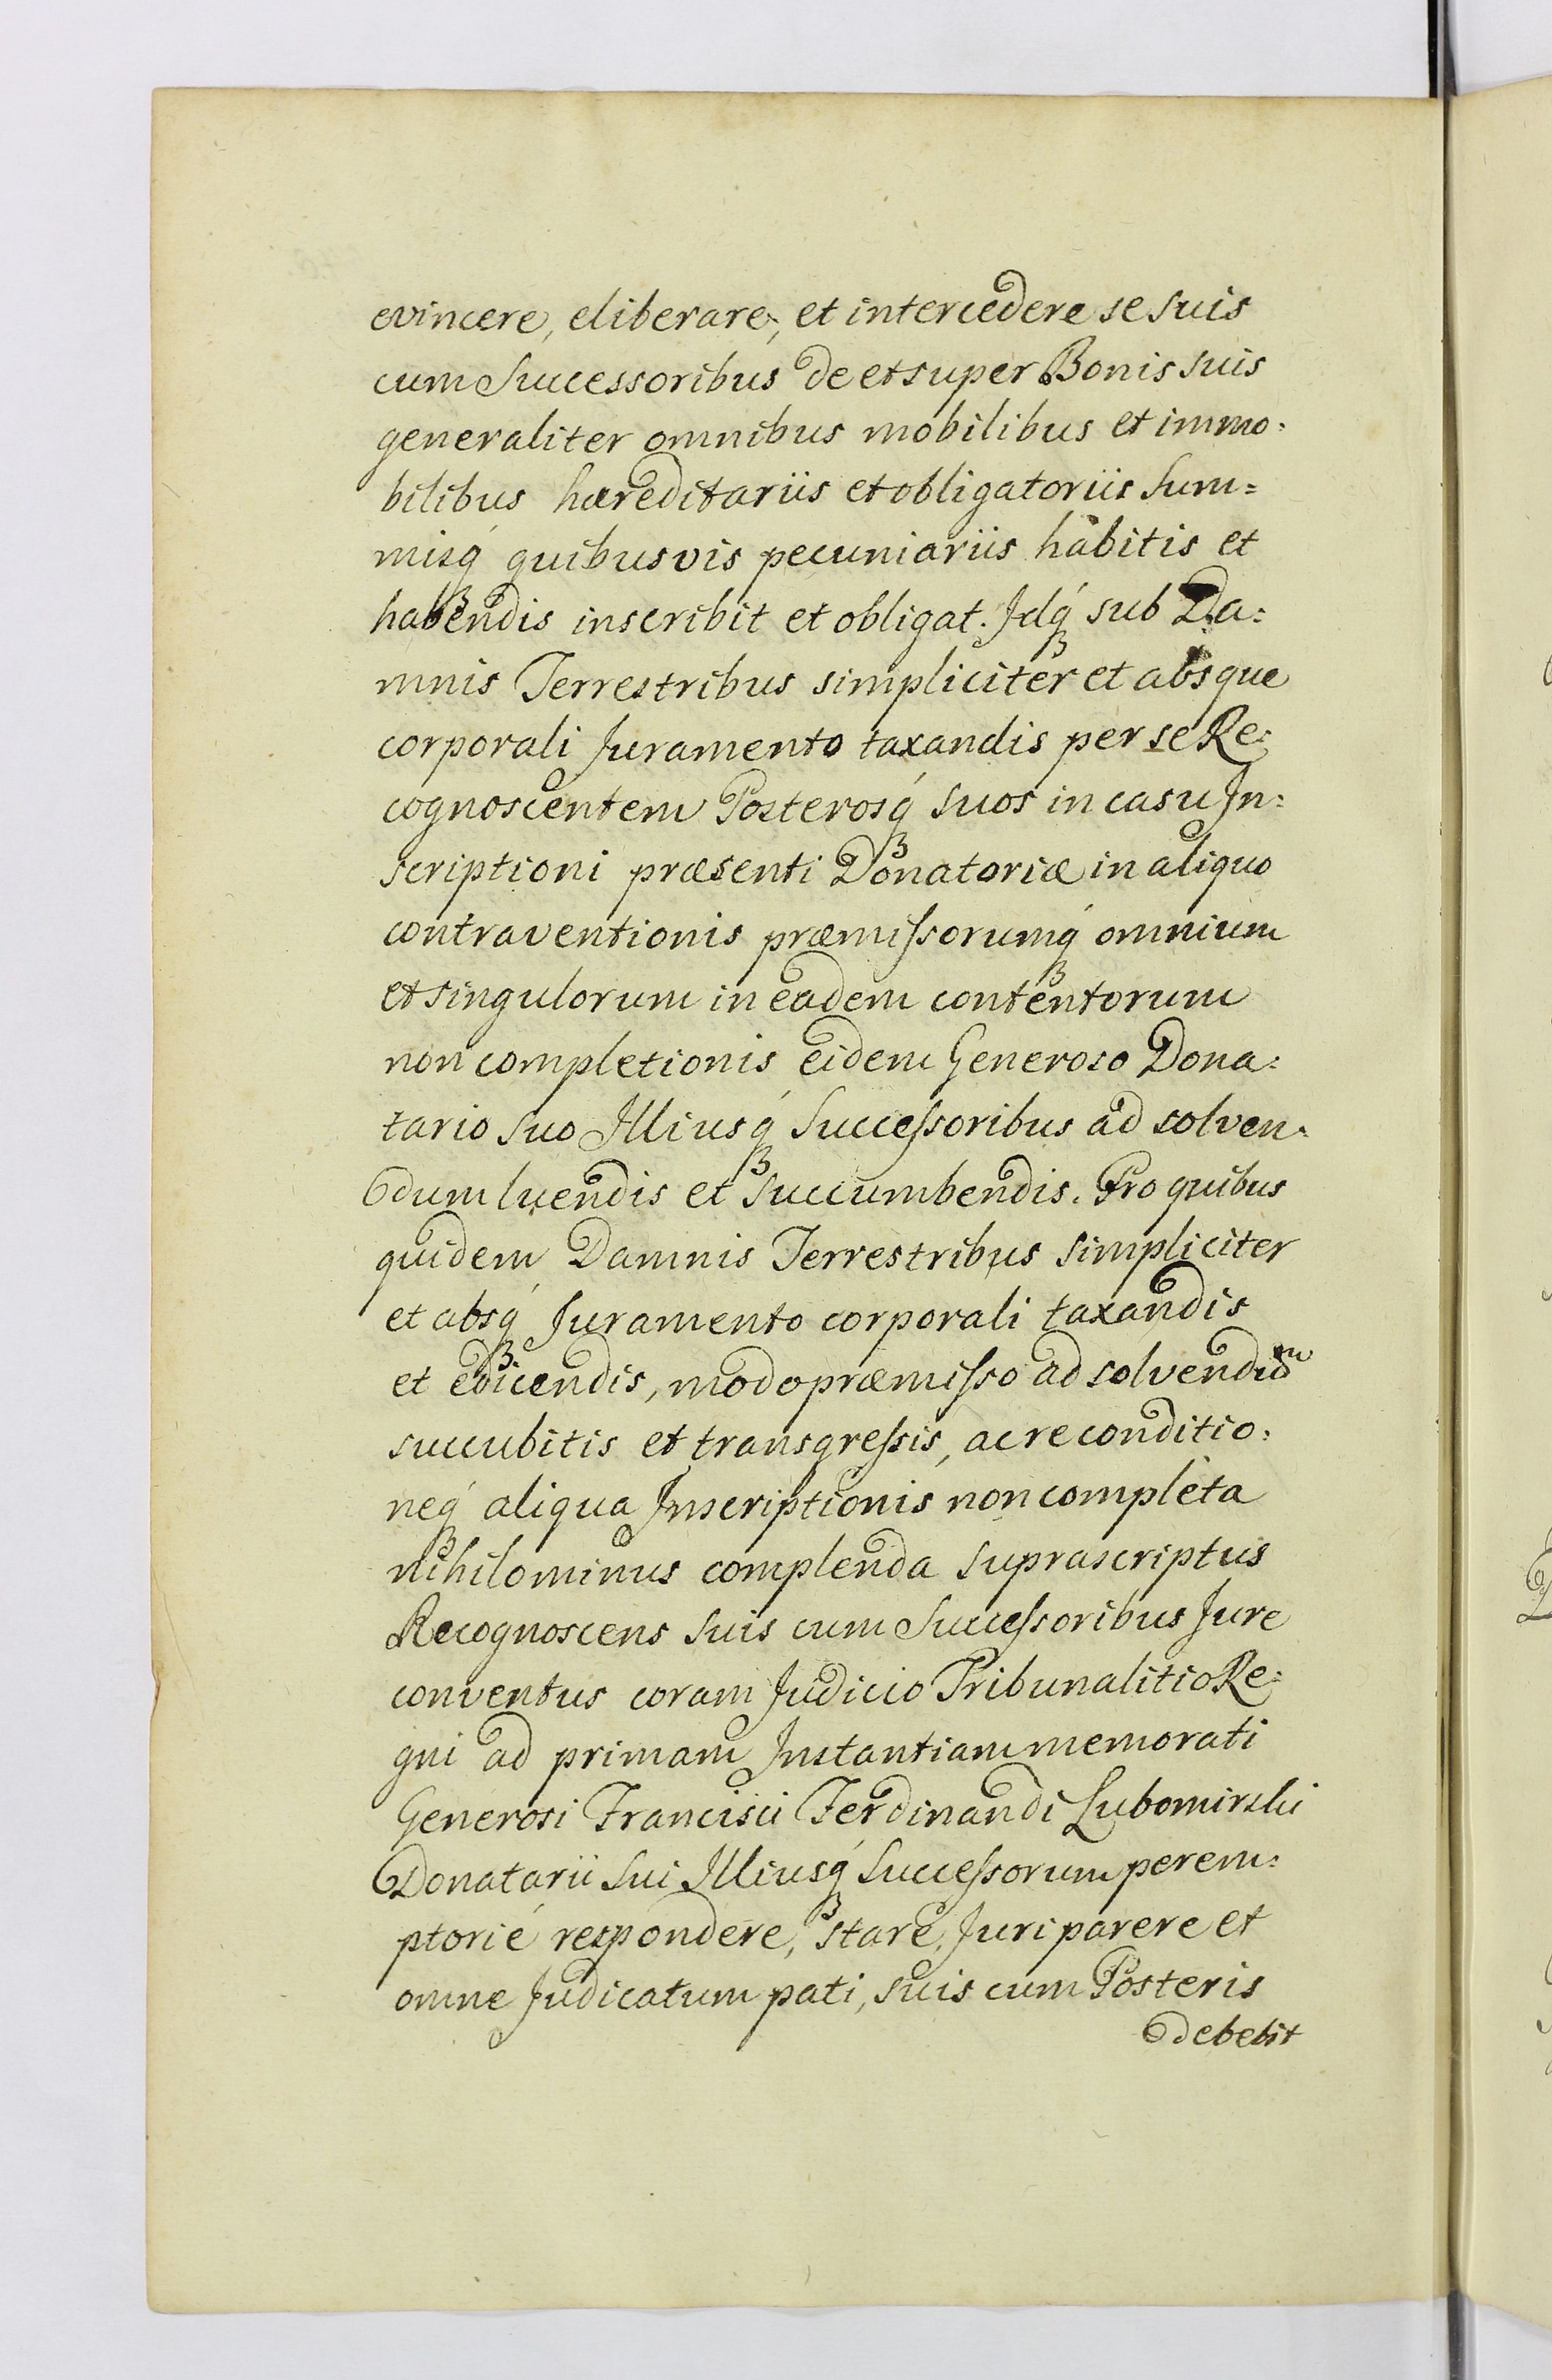 evincere, eliberare, et intercedere se suis
cum Successoribus de et super Bonis suis
generaliter omnibus mobilibus et immo:
bilibus hæreditariis et obligatoriis Sum=
misq́ꝫ quibusvis pecuniariis habitis et
habendis inscribit et obligat. Jdq́ꝫ sub Da:
mnis Terrestribus simpliciter et absque
corporali Juramento taxandis per se Re:
cognoscentem Posterosq́ꝫ suos in casu Jn:
scriptioni præsenti Donatoriæ in aliquo
contraventionis præmiſsorumq́ꝫ omnium
et singulorum in eadem contentorum
non completionis eidem Generoso Dona:
tario suo Jlliusq́ꝫ Succeſsoribus ad solven:
dum luendis et succumbendis. Pro quibus
quidem Damnis Terrestribus simpliciter
et absq́ꝫ Juramento corporali taxandis
et edicendis, modo præmiſso ad solvendum
succubitis et transgreſsis, ac re conditio:
neq́ꝫ aliqua Jnscriptionis non completa
nihilominus complenda suprascriptus
Recognoscens suis cum Succeſsoribus Jure
conventus coram Judicio Tribunalitio Re:
gni ad primam Jnstantiam memorati
Generosi Francisci Ferdinandi Lubomirski
Donatarii sui Jlliusq́ꝫ Succeſsorum perem:
ptorié respondere, stare, Juri parere et
omne Judicatum pati, suis cum Posteris
debebit